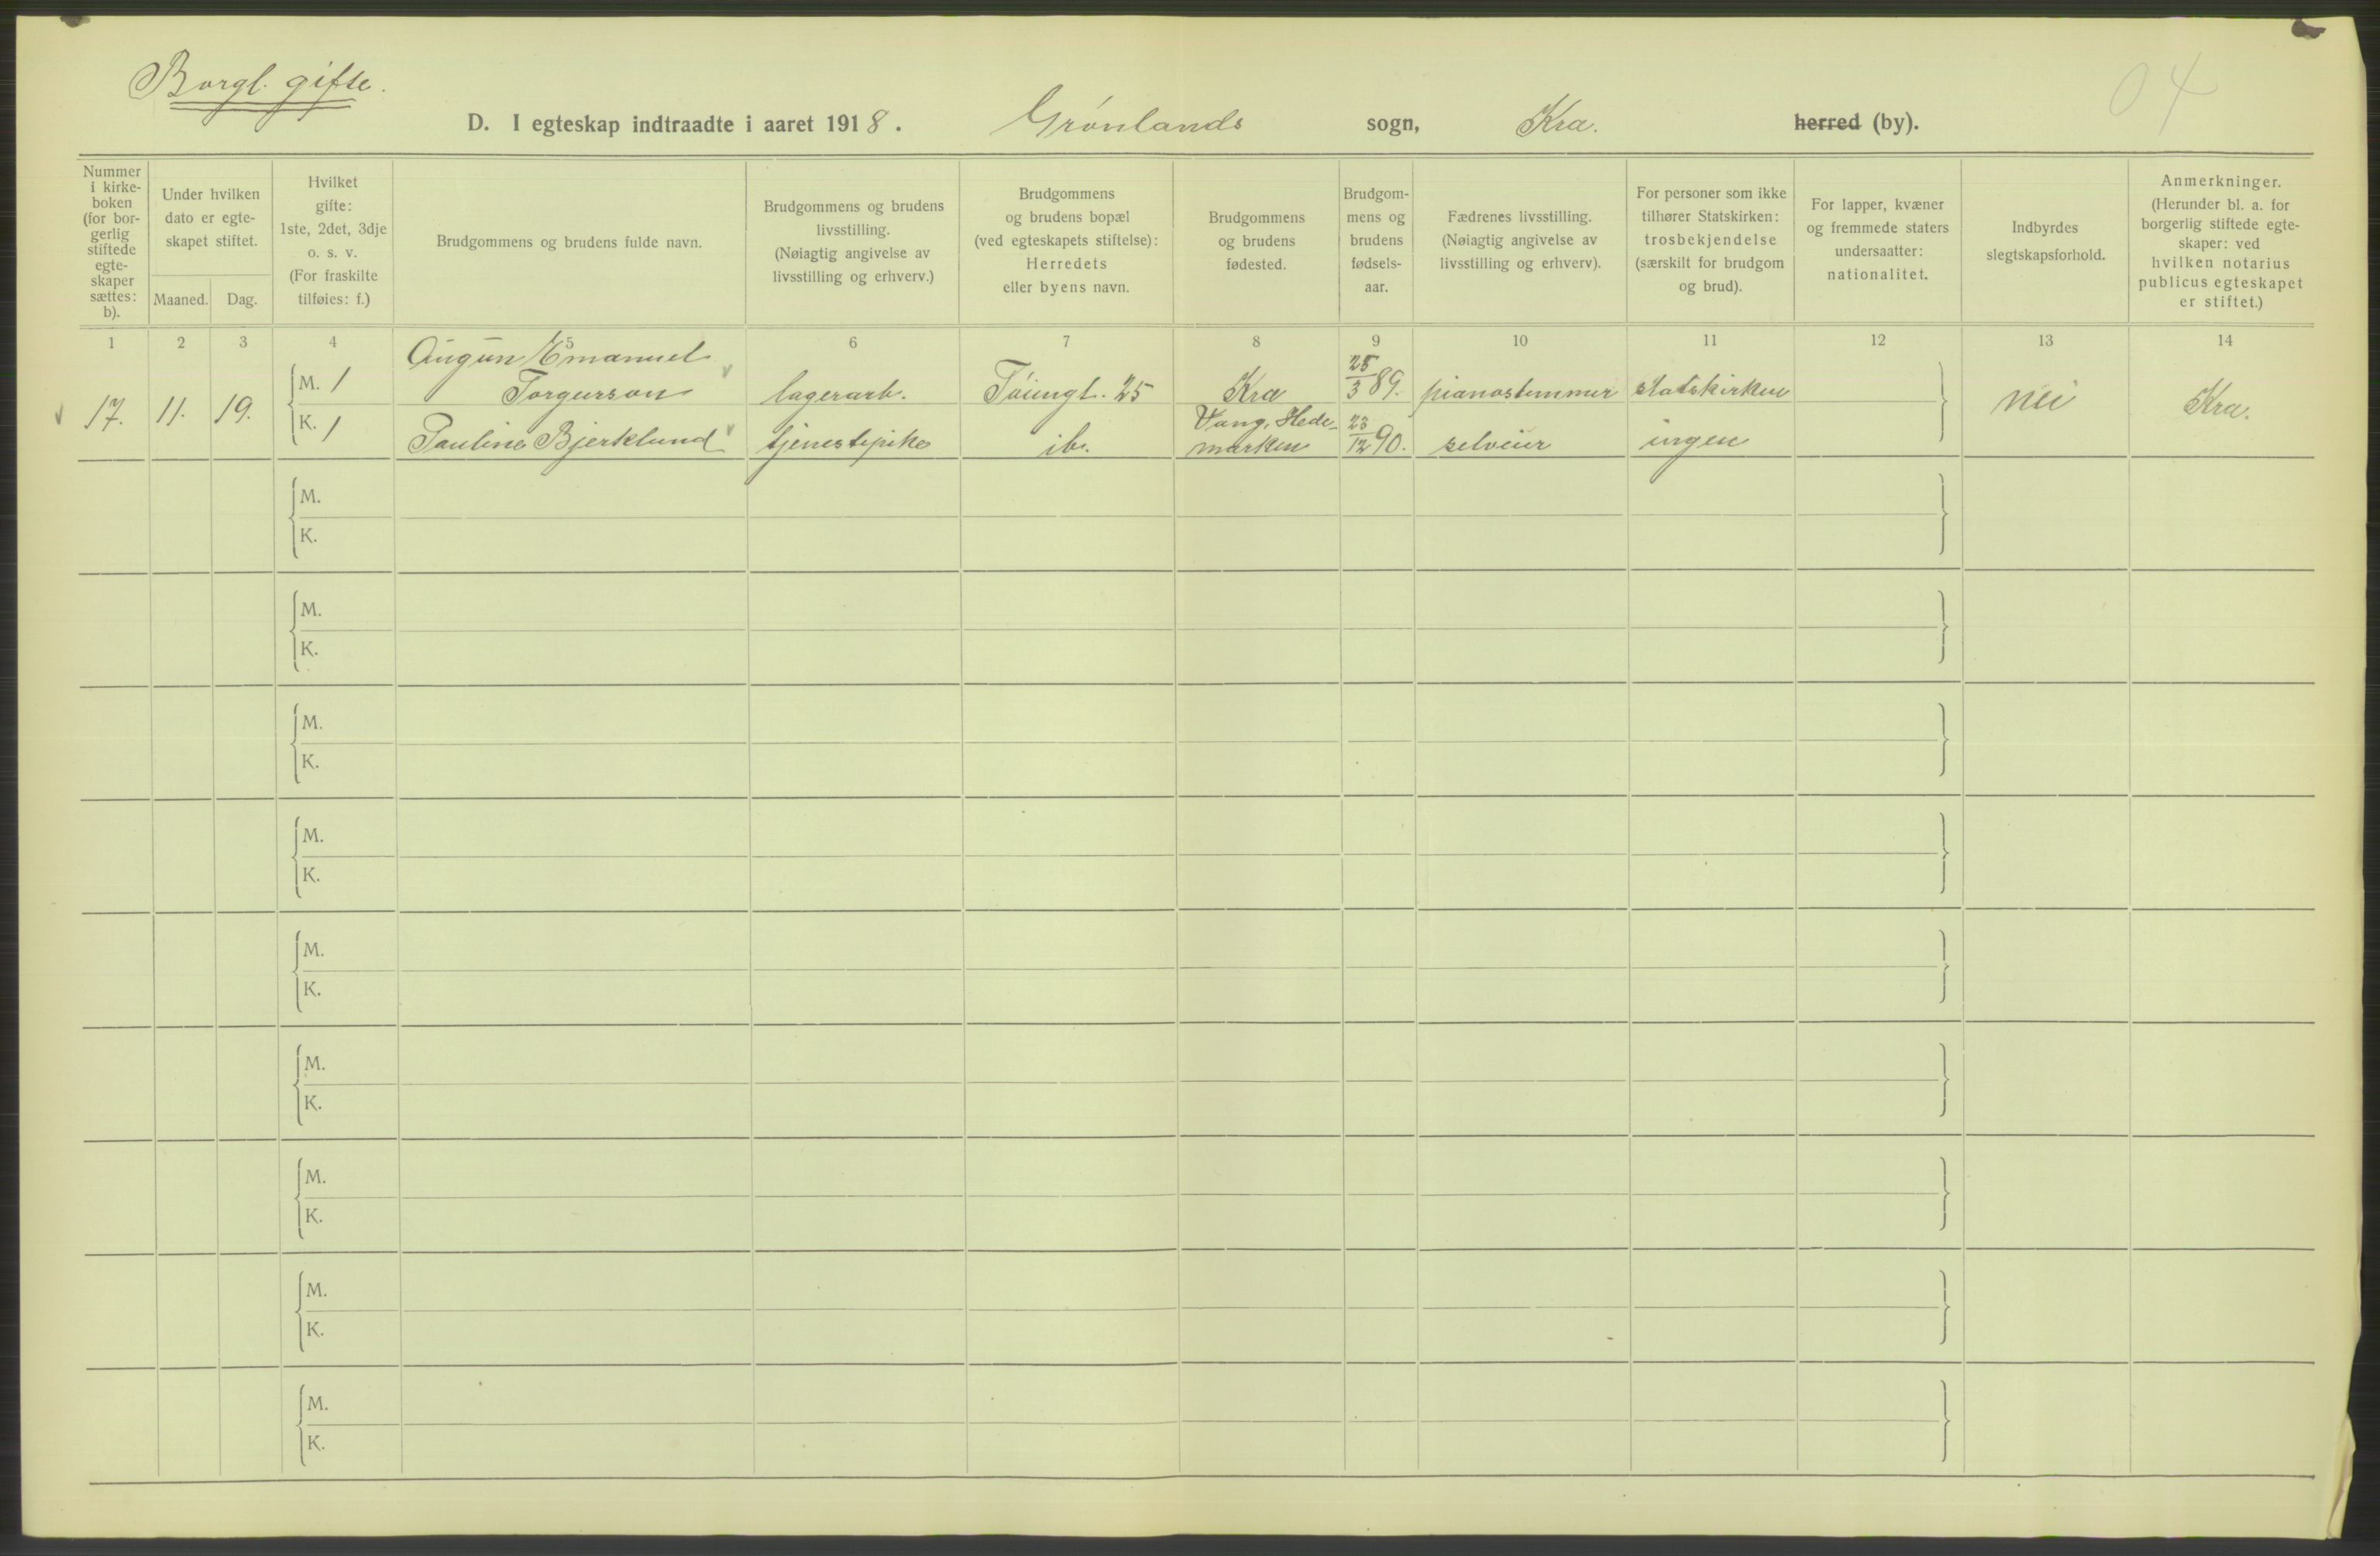 Borgl. gifte.
04
D. I egteskap indtraadte i aaret 1918. Grønlands sogn, Kra. herred (by).
Nummer
i kirke-
boken
(for bor-
gerlig
stiftede
egte-
skaper
sættes:
b).
Under hvilken
dato er egte-
skapet stiftet.
Maaned. Dag.
Hvilket
gifte:
1ste, 2det, 3dje
o. s. v.
(For fraskilte
tilføies: f.)
Brudgommens og brudens fulde navn.
Brudgommens og brudens
livsstilling.
(Nøiagtig angivelse av
livsstilling og erhverv.)
Brudgommens
og brudens bopæl
(ved egteskapets stiftelse):
Herredets
eller byens navn.
Brudgommens
og brudens
fødested.
Brudgom-
mens og
brudens
fødsels-
aar.
Fædrenes livsstilling.
(Nøiagtig angivelse av
livsstilling og erhverv).
For personer som ikke
tilhører Statskirken:
trosbekjendelse
(særskilt for brudgom
og brud).
For lapper, kvæner
og fremmede staters
undersaatter:
nationalitet.
Indbyrdes
slegtskapsforhold.
Anmerkninger.
(Herunder bl. a. for
borgerlig stiftede egte-
skaper: ved
hvilken notarius
publicus egteskapet
er stiftet.)
1 2 3 4 5 6 7 8 9 10 11 12 13 14
17. 11. 19.
M. 1
Augun Emanuel
Torgurson lagerarb. Tøiengt. 25 Kra 25/3 89. pianostemmer statskirken
K. 1
Pauline Bjerklund tjenestepike ib. Vang, Hede-
marken 23/12 90. selveier ingen
nei Kra.
M.
K.
M.
K.
M.
K.
M.
K.
M.
K.
M.
K.
M.
K.
M.
K.
M.
K.